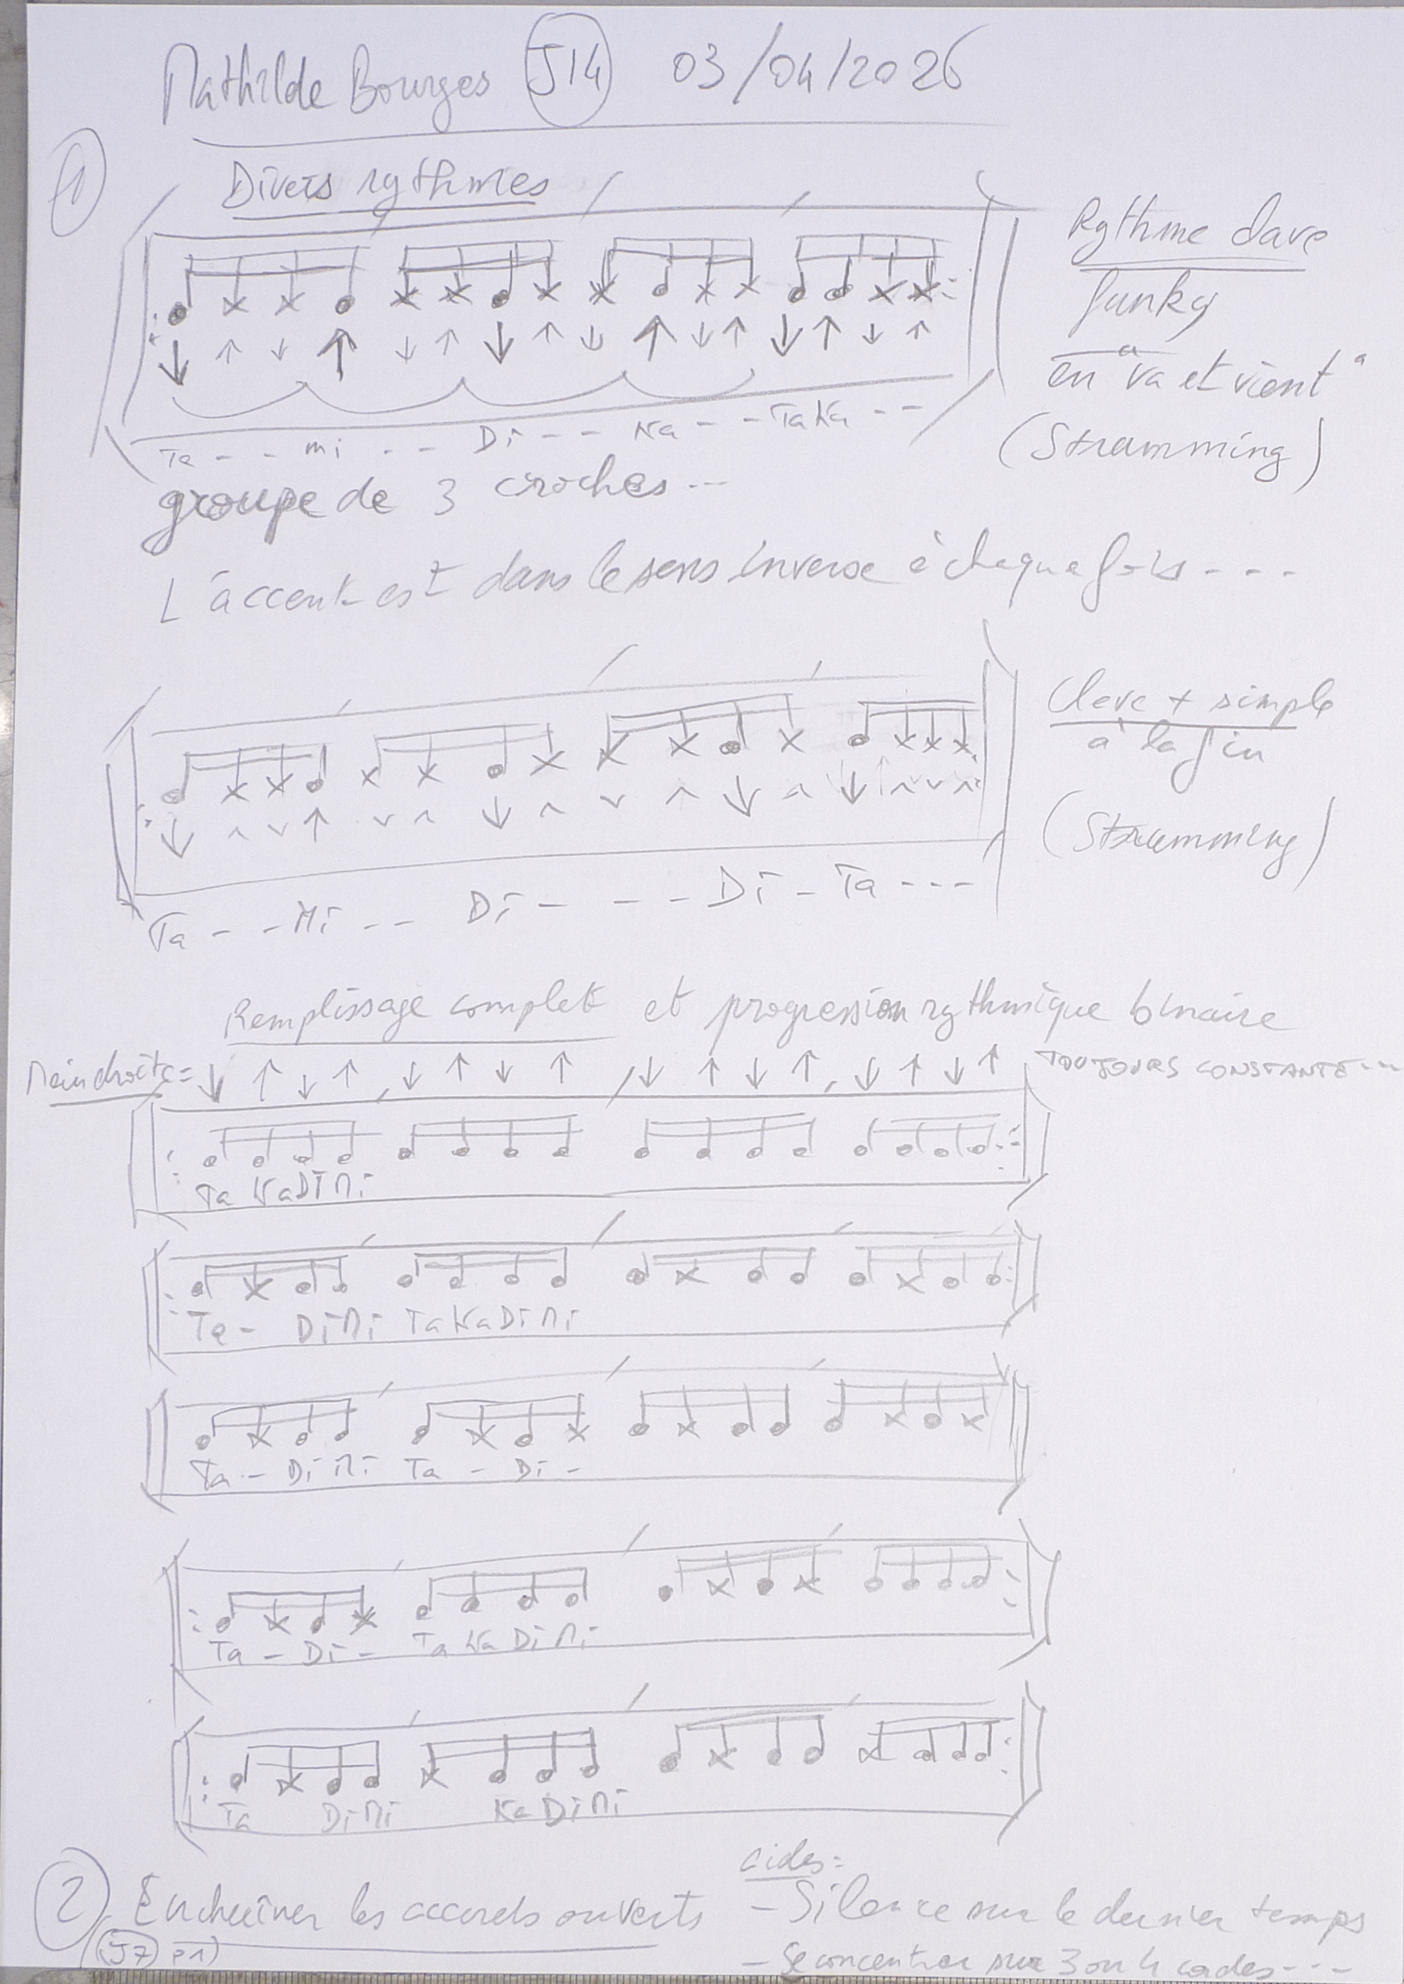 Mathilde Bourges J14 03/04/2026
1
Divers rythmes
Rythme clave
funky
en "va et vient"
(Strumming)
Ta - - mi - - Di - - Ka - - Taka - -
groupe de 3 croches...
L'accent est dans le sens inverse à chaque fois - - -
Clave + simple
à la fin
(Strumming)
Ta - - Mi - - Di - - - - Di - Ta - - -
Remplissage complet et progression rythmique binaire
Main droite = ↓ ↑ ↓ ↑, ↓ ↑ ↓ ↑, ↓ ↑ ↓ ↑, ↓ ↑ ↓ ↑ TOUJOURS CONSTANTE...
Ta KaDiMi
Ta - DiMi TaKaDiMi
Ta - Di Mi Ta - Di -
Ta - Di - Ta Ka Di Mi
Ta DiMi Ka DiMi
2 Enchaîner les accords ouverts
(J7 p1)
aides =
- Silence sur le dernier temps
- Se concentrer sur 3 ou 4 cordes - - -